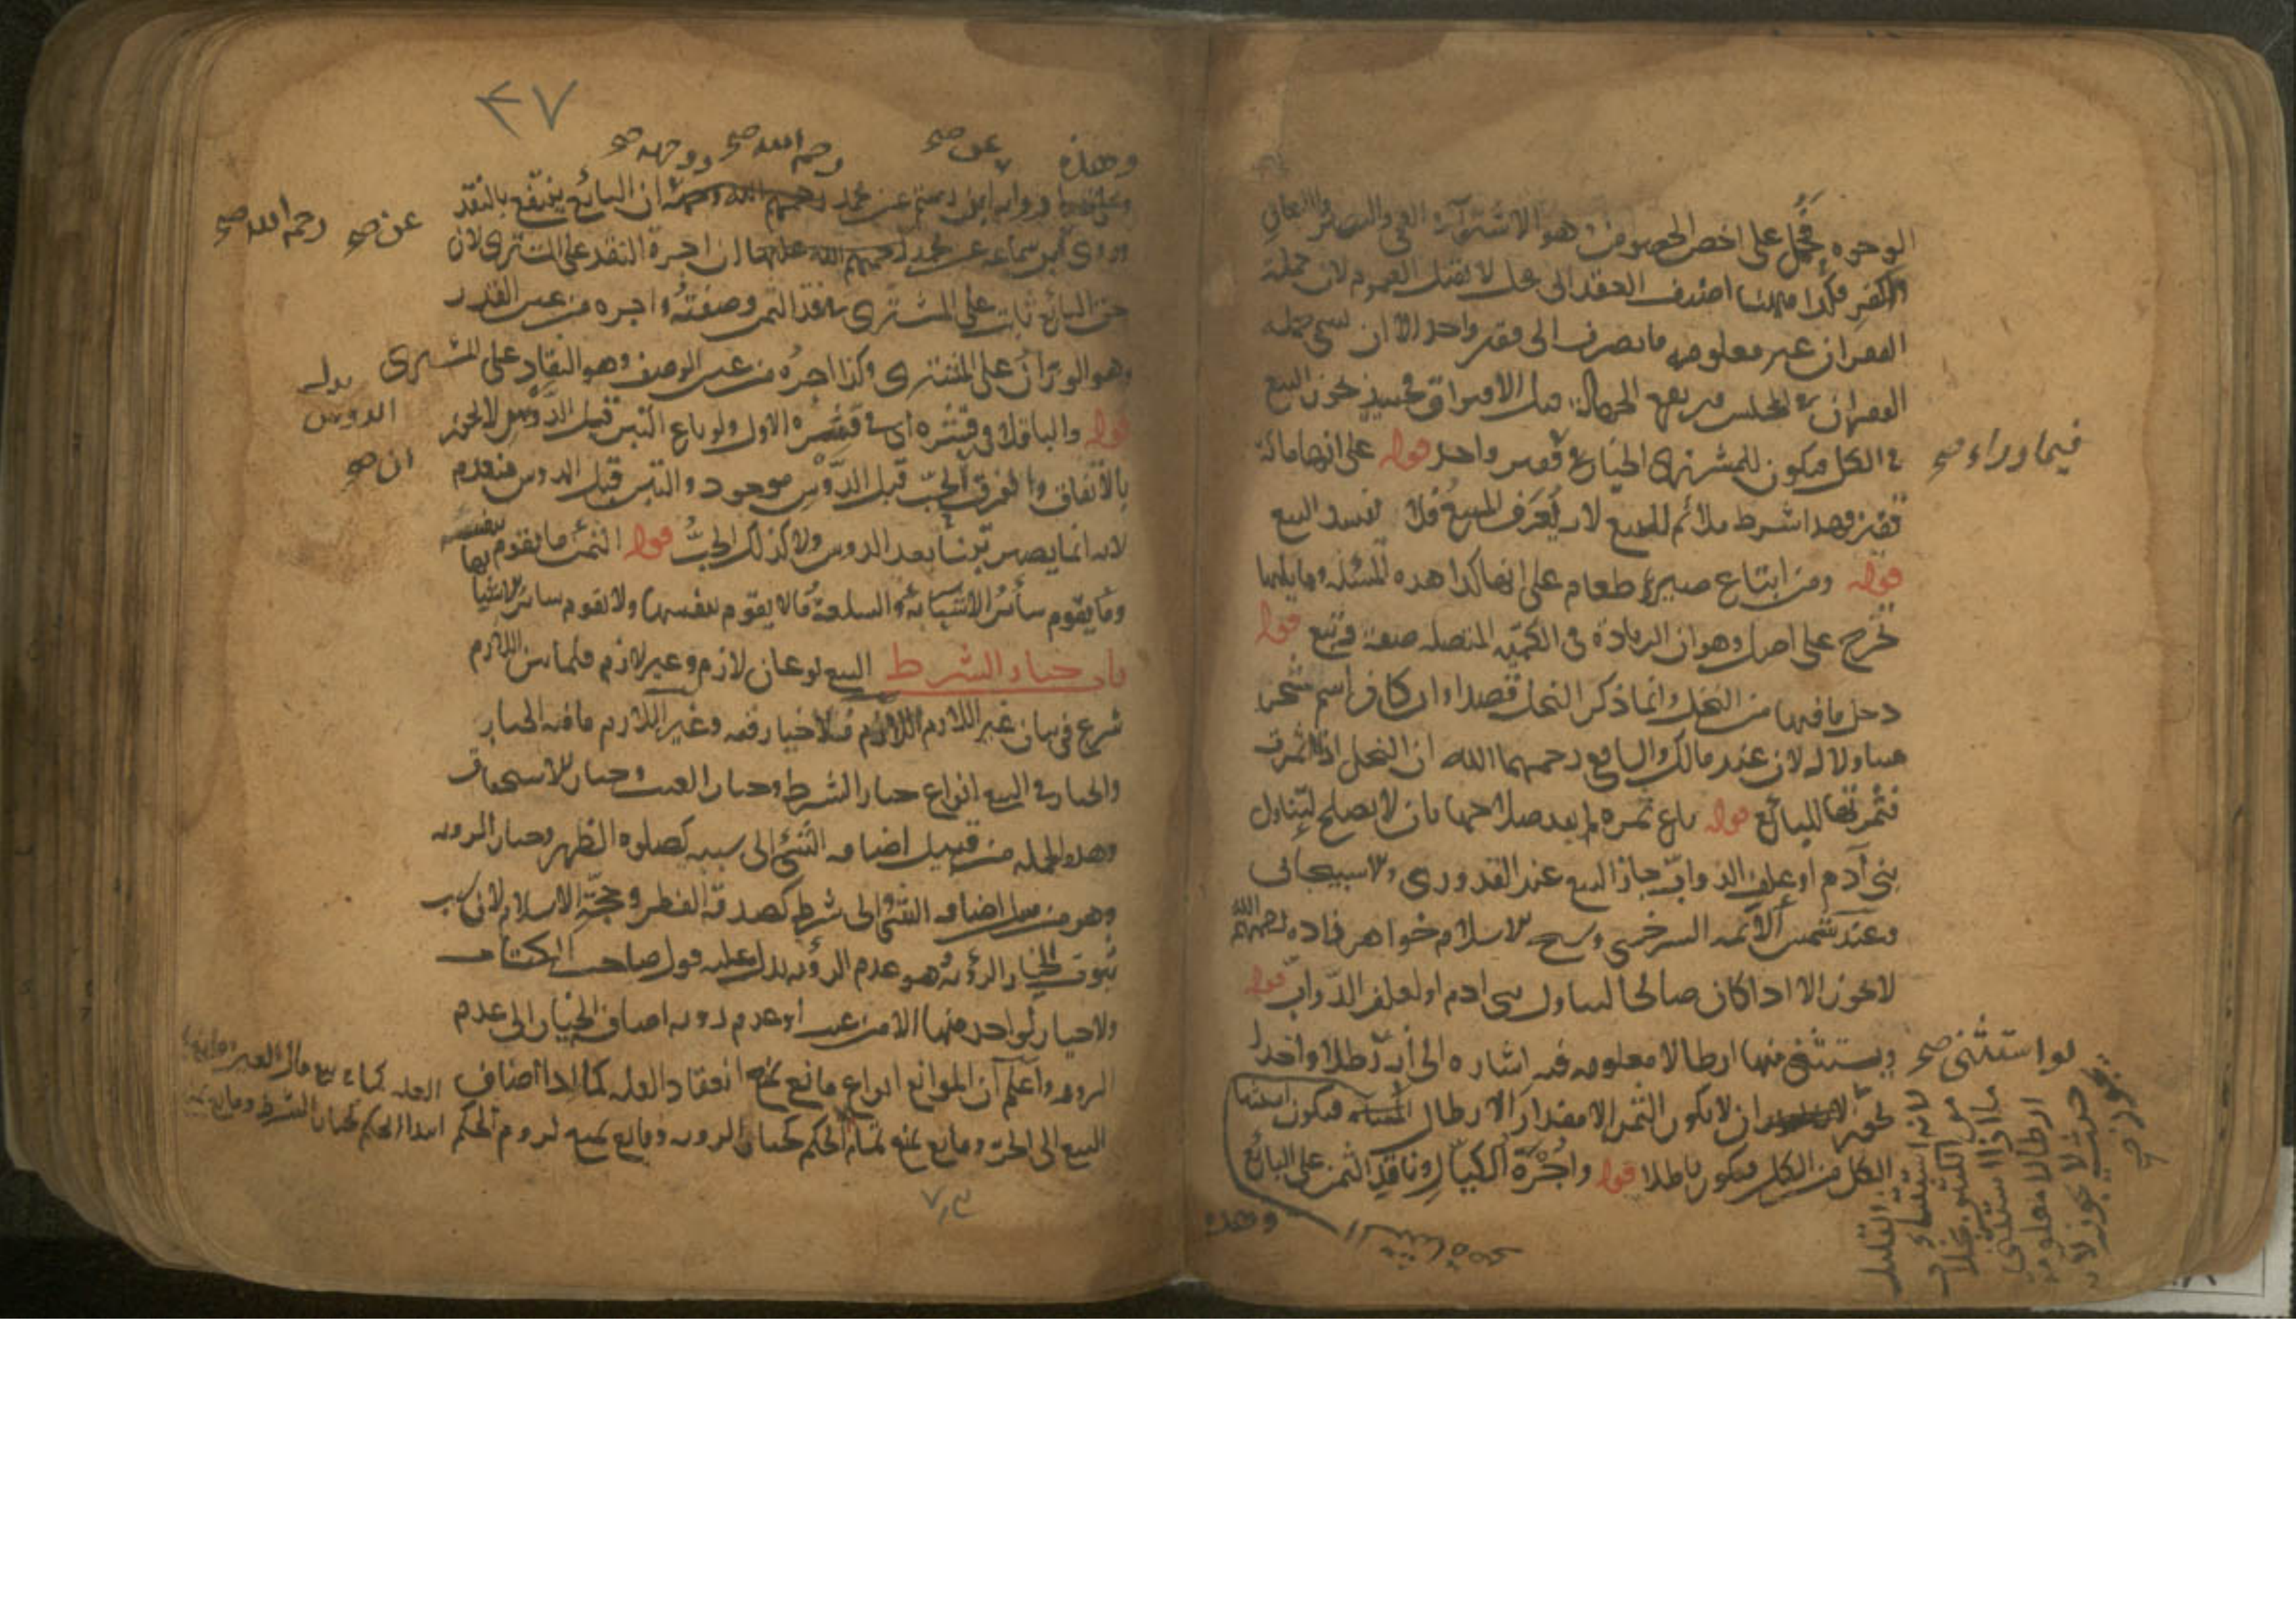 الوجوه فحمل على اخص الخصوص وهو الاستواء في العمى والبصر
والكفر فكذا ههنا اضيف العقد الى محل لا يقبل العموم لان جملة
القفزان غير معلومة فانصرف الى قفيز واحد الا ان يسمى جملة
القفزان في المجلس فيرتفع الجهالة قبل الافتراق فحينئذ يجوز البيع
في الكل فيكون للمشترى الخيار في قفيز واحد قوله على انها مائة
فيما وراء صح
قفيز وهذا شرط ملائم للبيع لانه يُعَرِّف المبيع فلا يفسد البيع
قوله ومن ابتاع صبرة طعام على انها كذا هذه المسئلة وما يليها
تخرج على اصل وهو ان الزيادة في الكمية المتصلة صفة فتتبع قوله
دخل ما فيها من النخل وانما ذكر النخل قصدا وان كان اسم شجر
متناولا له لان عند مالك والشافعي رحمهما الله ان النخل اذا اثمرت
فثمرتها للبائع قوله باع ثمرة لم يبد صلاحها بان لا يصلح لتناول
بنى آدم او علف الدواب جاز البيع عند القدورى والاسبيجابى
وعند شمس الائمة السرخسى وشيخ الاسلام خواهر زاده رحمهم الله
لا يجوز الا اذا كان صالحا لتناول بنى ادم او لعلف الدواب قوله
ويستثنى منها ارطالا معلومة فيه اشارة الى أنه رطلا واحدا
لو استثنى صح
يجوز ان لا يكون الثمر الا مقدار الارطال فيكون استثناء
الكل من الكل فيكون باطلا قوله واُجْرَةُ الكيّال وناقد الثمن على البائع
وهذه
لانه استثناء القليل
من الكثير بخلاف
ما اذا استثنى
ارطالا معلومة
حيث لا يجوز لانه
٤٧
وهذه
عن صح
رحمه الله صح
ووجهه صح
رواية ابن رستم عن محمد ان البائع ينتفع بالنقد
وروى ابن سماعة عن محمد ان اجرة النقد على المشترى لان
عن صح رحمه الله صح
حق البائع ثابت على المشترى بنقد الثمن وصفته واجرة من عين القدر
وهو الوزان على المشترى وكذا اجرة من عين الوصف وهو النقاد على المشترى
قوله والباقلا في قشره اى في قشره الاول ولو باع التبن قبل الدَّوْس لا يجوز
الدوس
بالاتفاق والفرق أنّ الحبّ قبل الدَّوْس موجود والتبن قبل الدوس منعدم
ان صح
لانه انما يصير تبنا بعد الدوس ولا كذلك الحبُّ قوله الثمن ما يقوم بنفسه
وما يقوم سائر الاشياء به والسلعة ما لا يقوم بنفسها ولا يقوم سائر الاشيا
باب خيار الشرط البيع نوعان لازم وغير لازم فلما بين اللازم
شرع في بيان غير اللازم اللازم ما لا خيار فيه وغير اللازم ما فيه الخيار
والخيار في البيع انواع خيار الشرط وخيار العيب وخيار الاستحقاق
وهذه الجملة من قبيل اضافة الشئ الى سببه كصلوة الظهر وخيار الروية
وهو من قبيل اضافة الشئ الى شرطه كصدقة الفطر وحجة الاسلام لان سبب
ثبوت الخيار الرؤية هو عدم الرؤية يدل عليه قول صاحب الكتاب
ولا خيار لواحد منهما الا من عيب او عدم روية اضاف الخيار الى عدم
الروية واعلم أن الموانع انواع مانع يمنع انعقاد العلة كما اذا اضاف
البيع الى الحر ومانع يمنع تمام الحكم كخيار الروية ومانع يمنع لزوم الحكم
العلة كما في بيع مال الغير
ابتداء الحكم كخيار الشرط ومانع يمنع